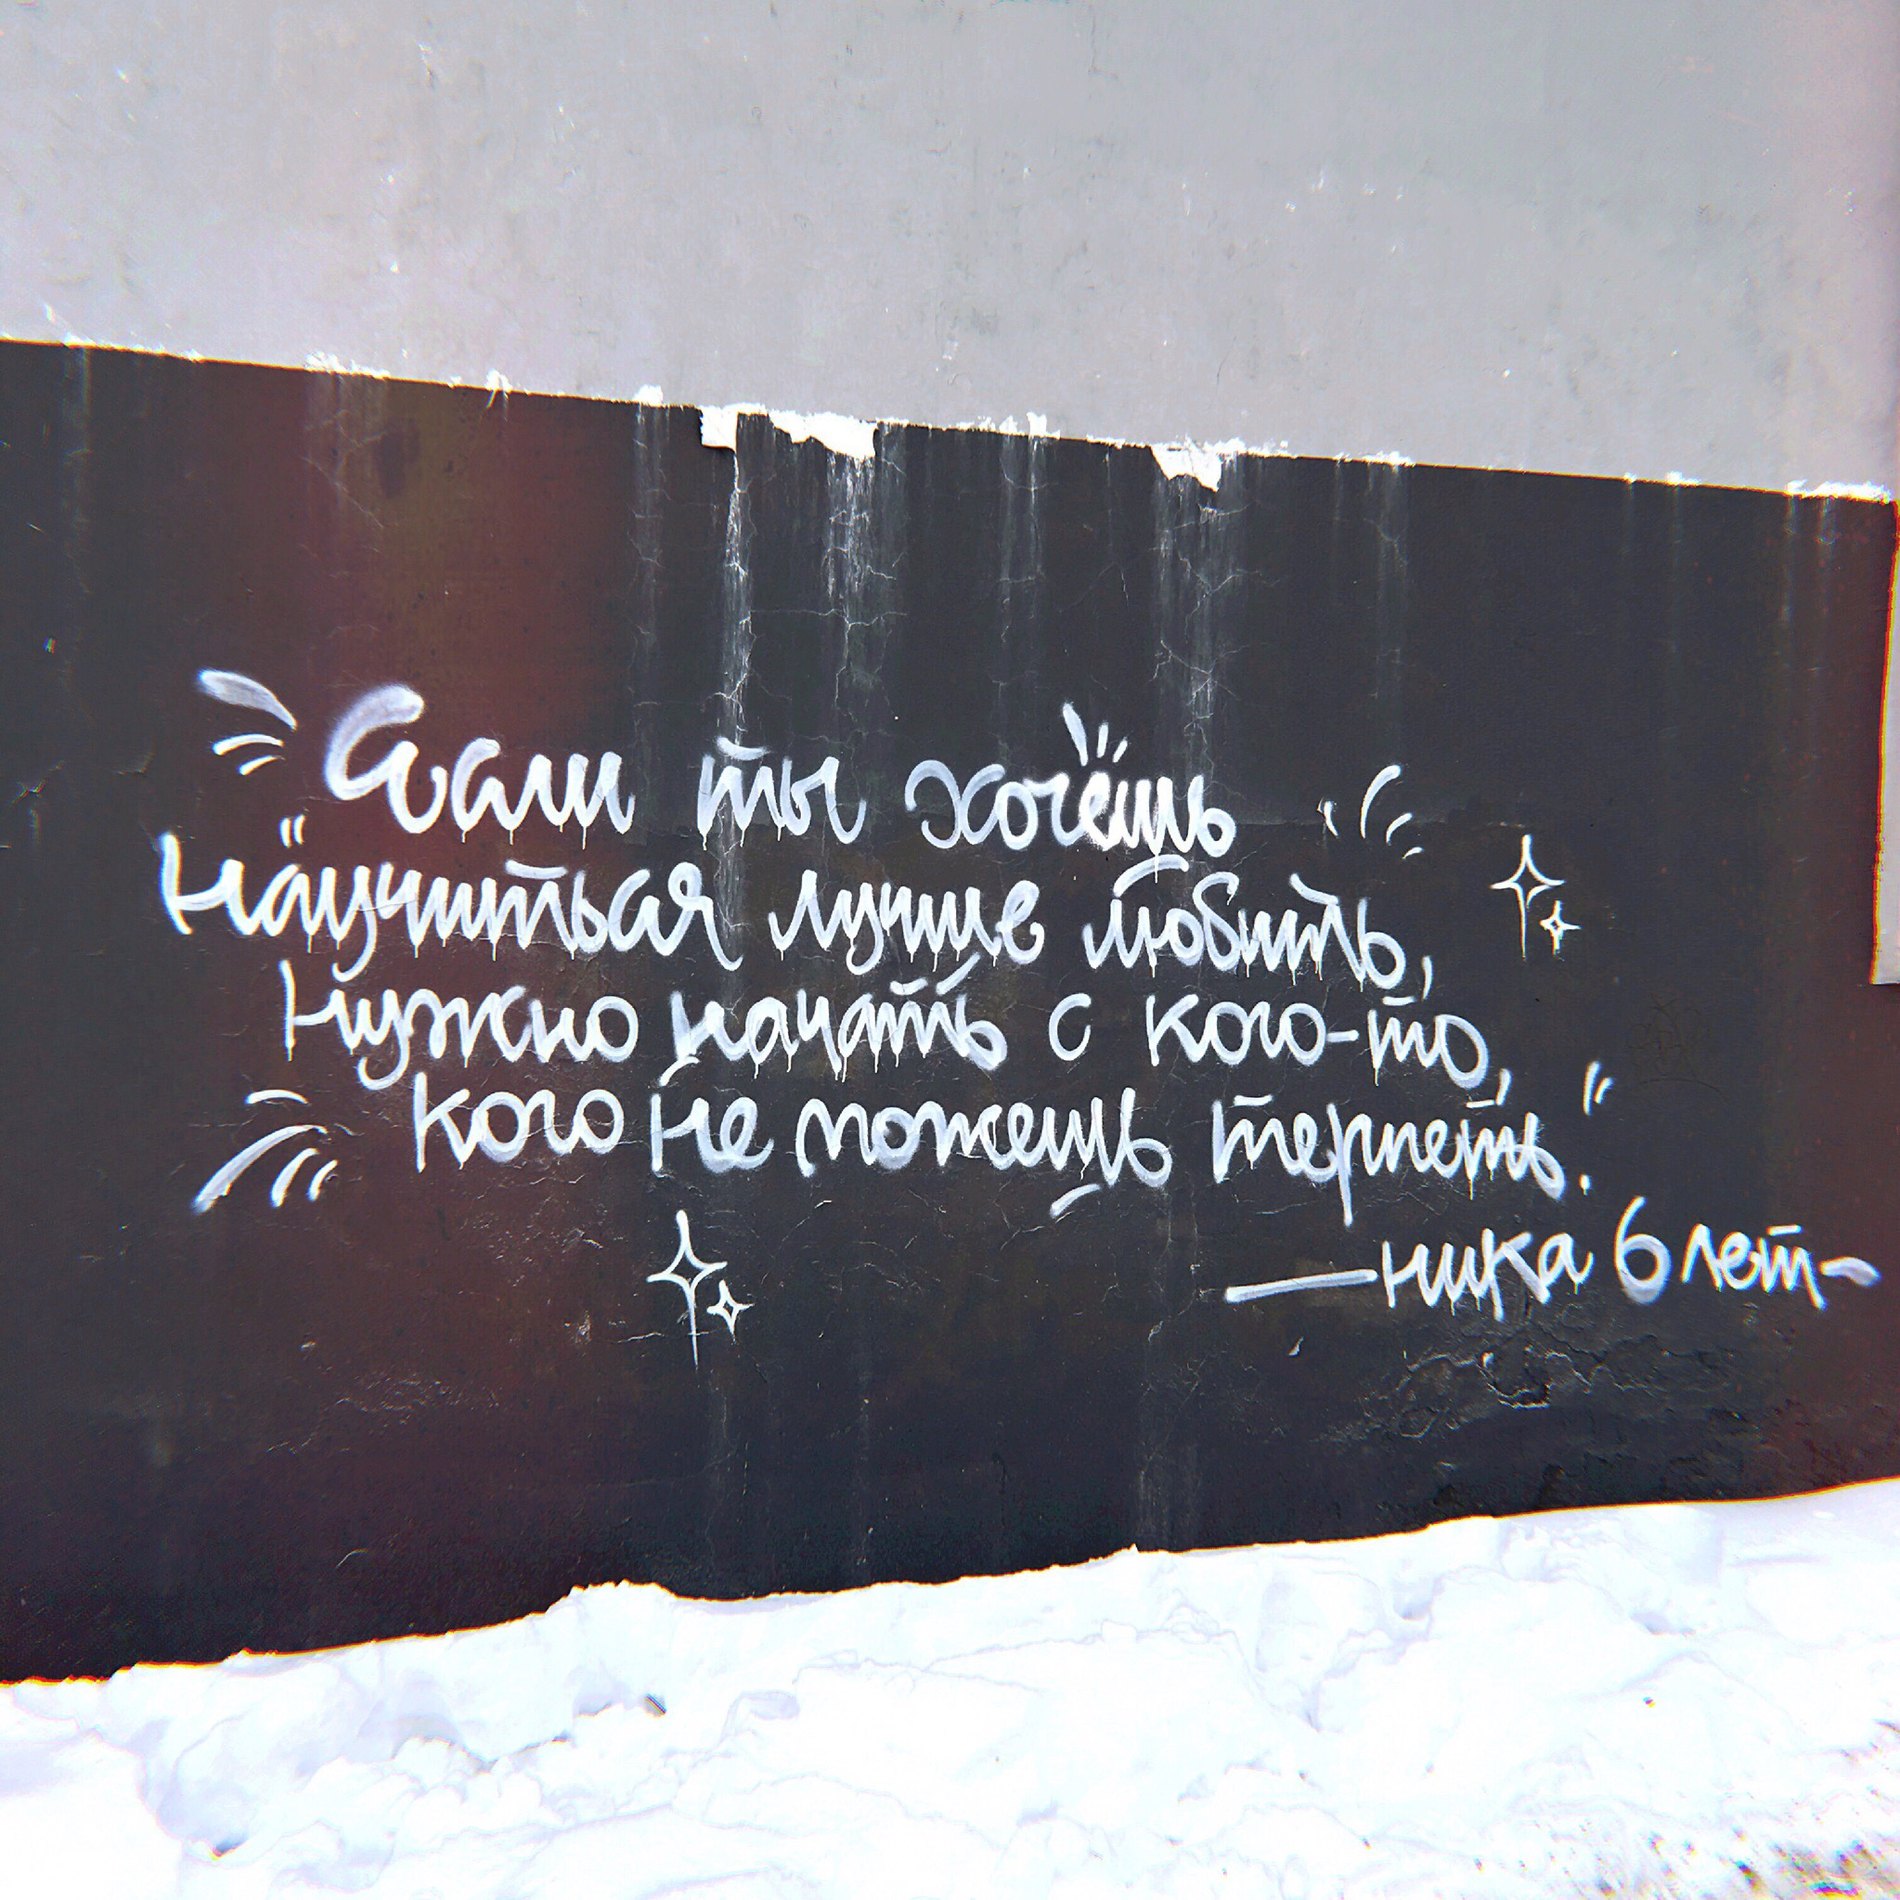 Если ты хочешь
"научиться лучше любить,
нужно начать с кого-то,
кого не можешь терпеть."
—ника 6 лет-